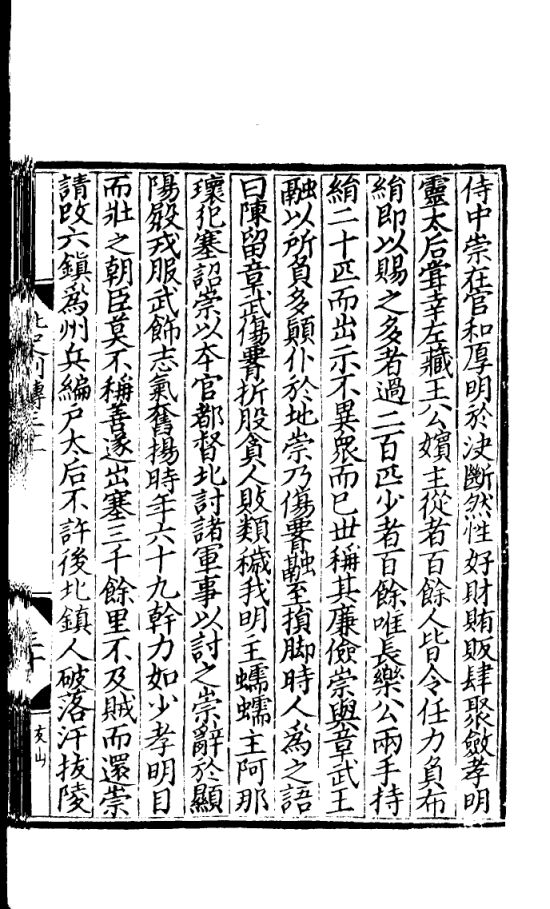 侍中崇在官和厚明於決斷然性好財賄販肆聚斂孝明
靈太后嘗幸左藏王公嬪主從者百餘人皆令任力負布
絹即以賜之多者過二百匹少者百餘唯長樂公兩手持
絹二十匹而出示不異衆而已世稱其廉儉崇與章武王
融以所負多顛仆於地崇乃傷䓈融至損脚時人爲之語
曰陳留章武傷䓈折股貪人敗類穢我明王蠕蠕主阿那
瓌犯塞詔崇以夲官都督北討諸軍事以討之崇辭於顯
陽殿戎服武飾志氣奮揚時年六十九幹力如少孝明目
而壯之朝臣莫不稱善遂出塞三千餘里不及賊而還崇
請改六鎮爲州兵編户太后不許後北鎮人破落汗拔陵